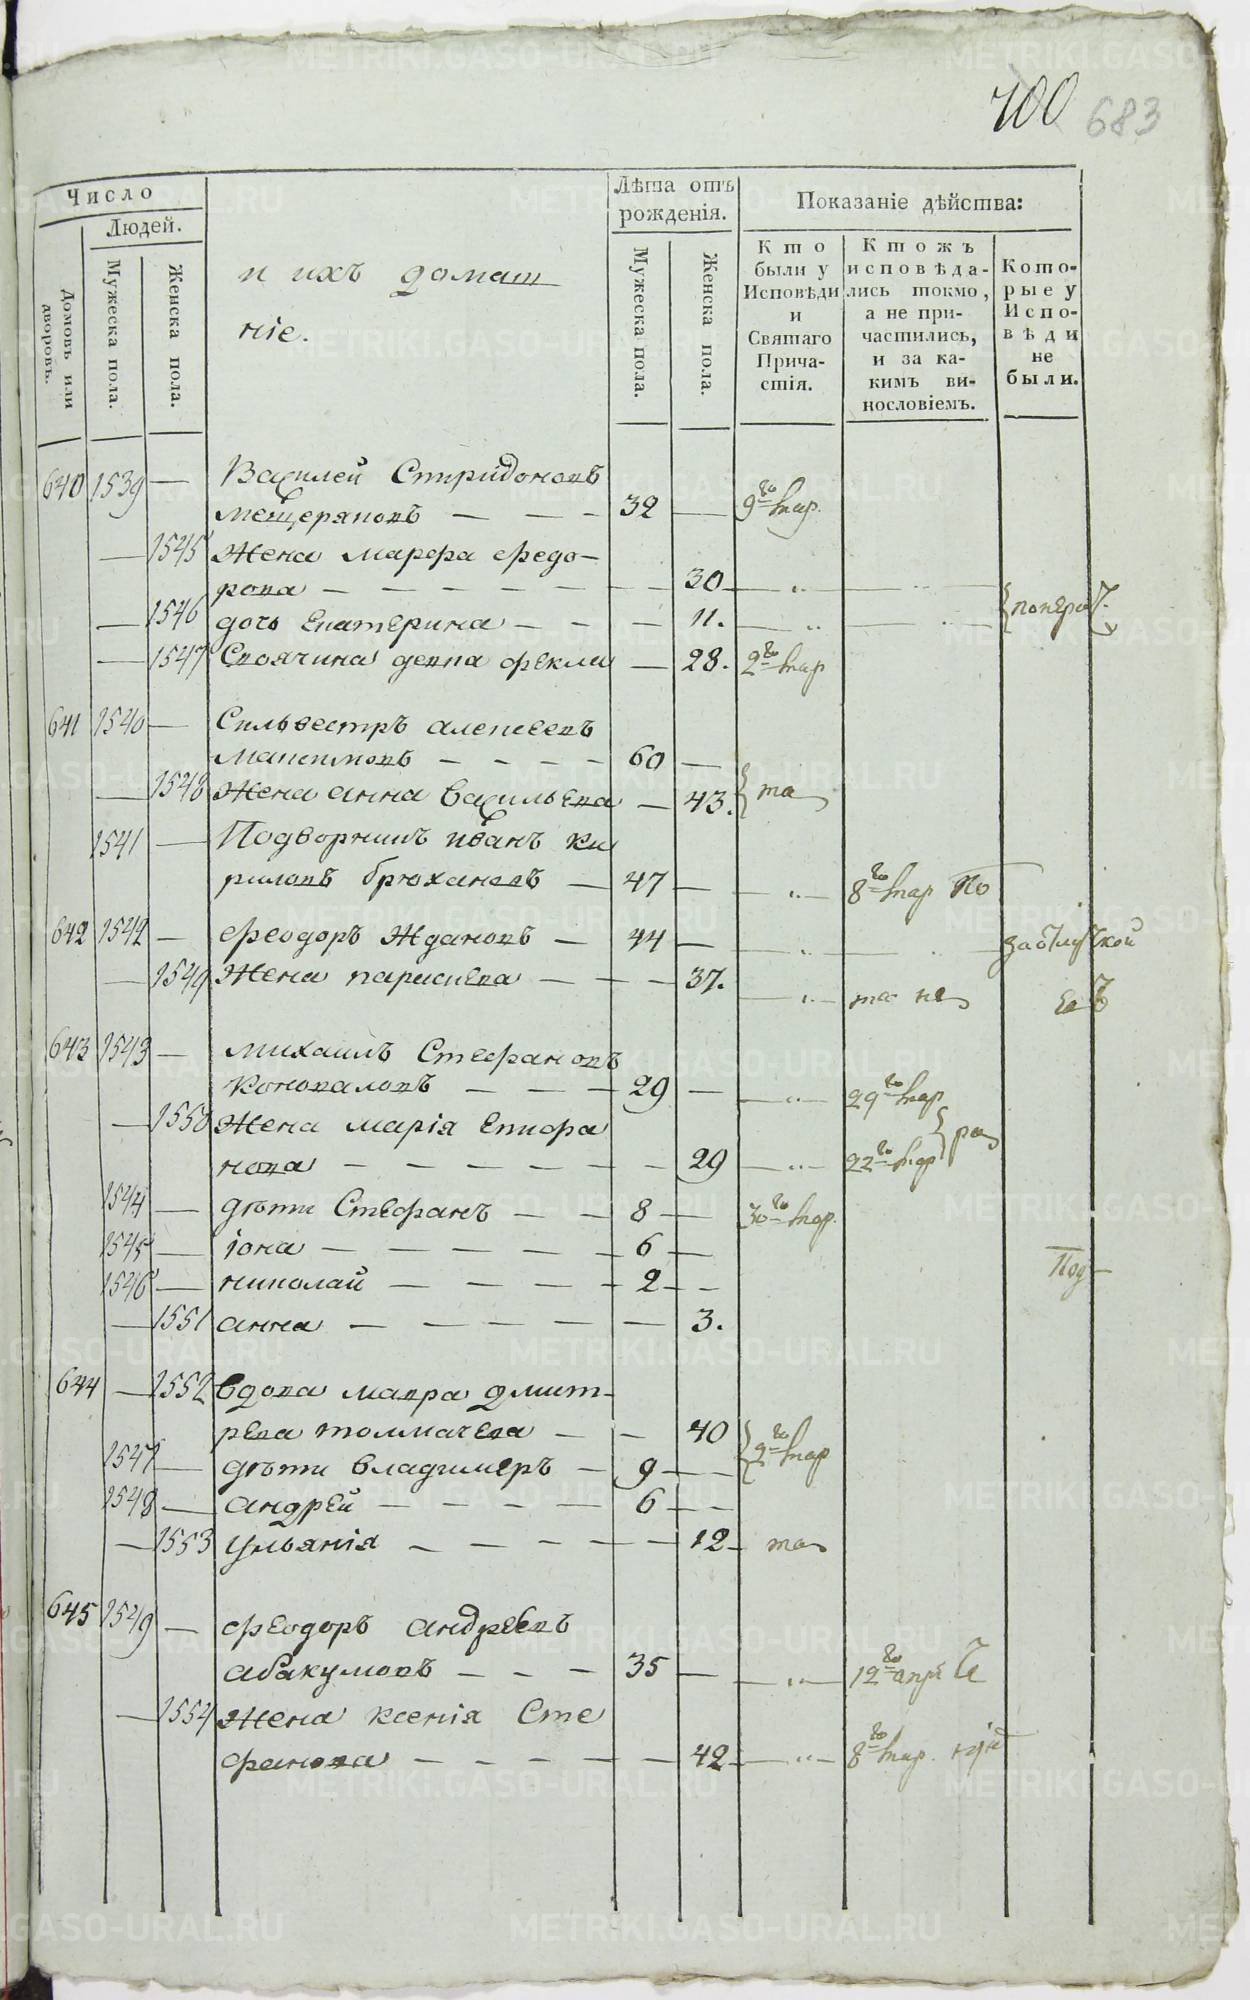 700 683
Число
Людей.
Домовъ или дворовъ.
Мужеска пола.
Женска пола.
и ихъ домаш
ніе.
Лѣта отъ рожденія.
Мужеска пола.
Женска пола.
Показаніе дѣйства:
Кто были у Исповѣди и Святаго Прича-стія.
Ктожъ исповѣда-лись токмо, а не при-частились, и за ка-кимъ ви-нословіемъ.
Кото-рые у Испо-вѣди не были.
640 1539 — Василей Спиридоновъ
Мещеряковъ — — — 32 — 9го мар.
— 1545 Жена Марфа Федо-
рова — — — — — — 30 — „ —
— 1546 дочь Екатерина — — — 11. — „ —
— 1547 Своячина девка Фекла — 28. 2го мар
641 1540 — Сильвестръ Алексеевъ
Максимовъ — — — — 60 —
— 1548 Жена Анна Васильева — 43. та
1541 — Подворникъ Иванъ Ки
риловъ Брюхановъ — 47 — — „ — 8го мар по
642 1542 — Феодоръ Ждановъ — 44 — — „ —
— 1549 Жена Парасъкева — — — 37. — „ —
643 1543 — Михаилъ Стефановъ
Коноваловъ — — — 29 — — „ — 29го мар
— 1550 Жена Марія Епифа
нова — — — — — — 29 — „ — 22го мар
1544 — дѣти Стефанъ — — 8 — 30го мар.
1545 — Іона — — — — — 6 —
1546 — Николай — — — — 2 — —
— 1551 Анна — — — — — — 3.
Под
644 — 1552 Вдова Мавра Дмит-
рева Толмачева — — 40 2го мар
1547 — дѣти Владимеръ — 9 — —
1548 — Андрей — — — — 6 — —
— 1553 Ульянія — — — — — 12 та
645 1549 — Феодоръ Андреевъ
Абакумовъ — — — 35 — — „ — 12го апр
— 1554 Жена Ксенія Сте
фанова — — — — — 42 — „ — 8го мар.
METRIKI.GASO-URAL.RU